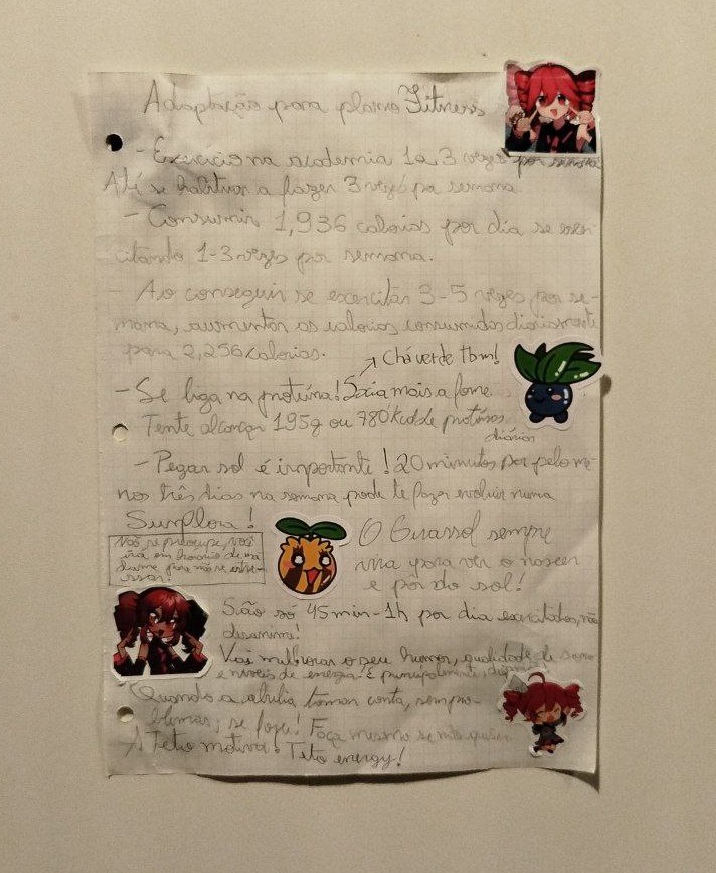 Adaptação para plano Fitness
- Exercício na academia 1 a 3 vezes por semana
Até se habituar a fazer 3 vezes por semana.
- Consumir 1,936 calorias por dia se exer-
citando 1-3 vezes por semana.
- Ao conseguir se exercitar 3-5 vezes por se-
mana, aumentar as calorias consumidas diariamente
para 2,256 calorias.
Chá verde tbm!
- Se liga na proteína! Sacia mais a fome
Tente alcançar 195g ou 780 kcal de proteínas
diárias
- Pegar sol é importante! 20 minutos por pelo me-
nos três dias na semana pode te fazer evoluir numa
Sunflora!
Não se preocupe, você
irá em horário de
para não se estres-
sar!
O Girassol sempre
vira para ver o nascer
e pôr do sol!
São só 45min-1h por dia exercitados, não
desanime!
Vai melhorar o seu humor, qualidade de sono
e níveis de energia. E principalmente,
- Quando a abulia tomar conta, sem pro-
blemas; se force! Faça mesmo se não quiser.
A Teto motiva. Teto energy!